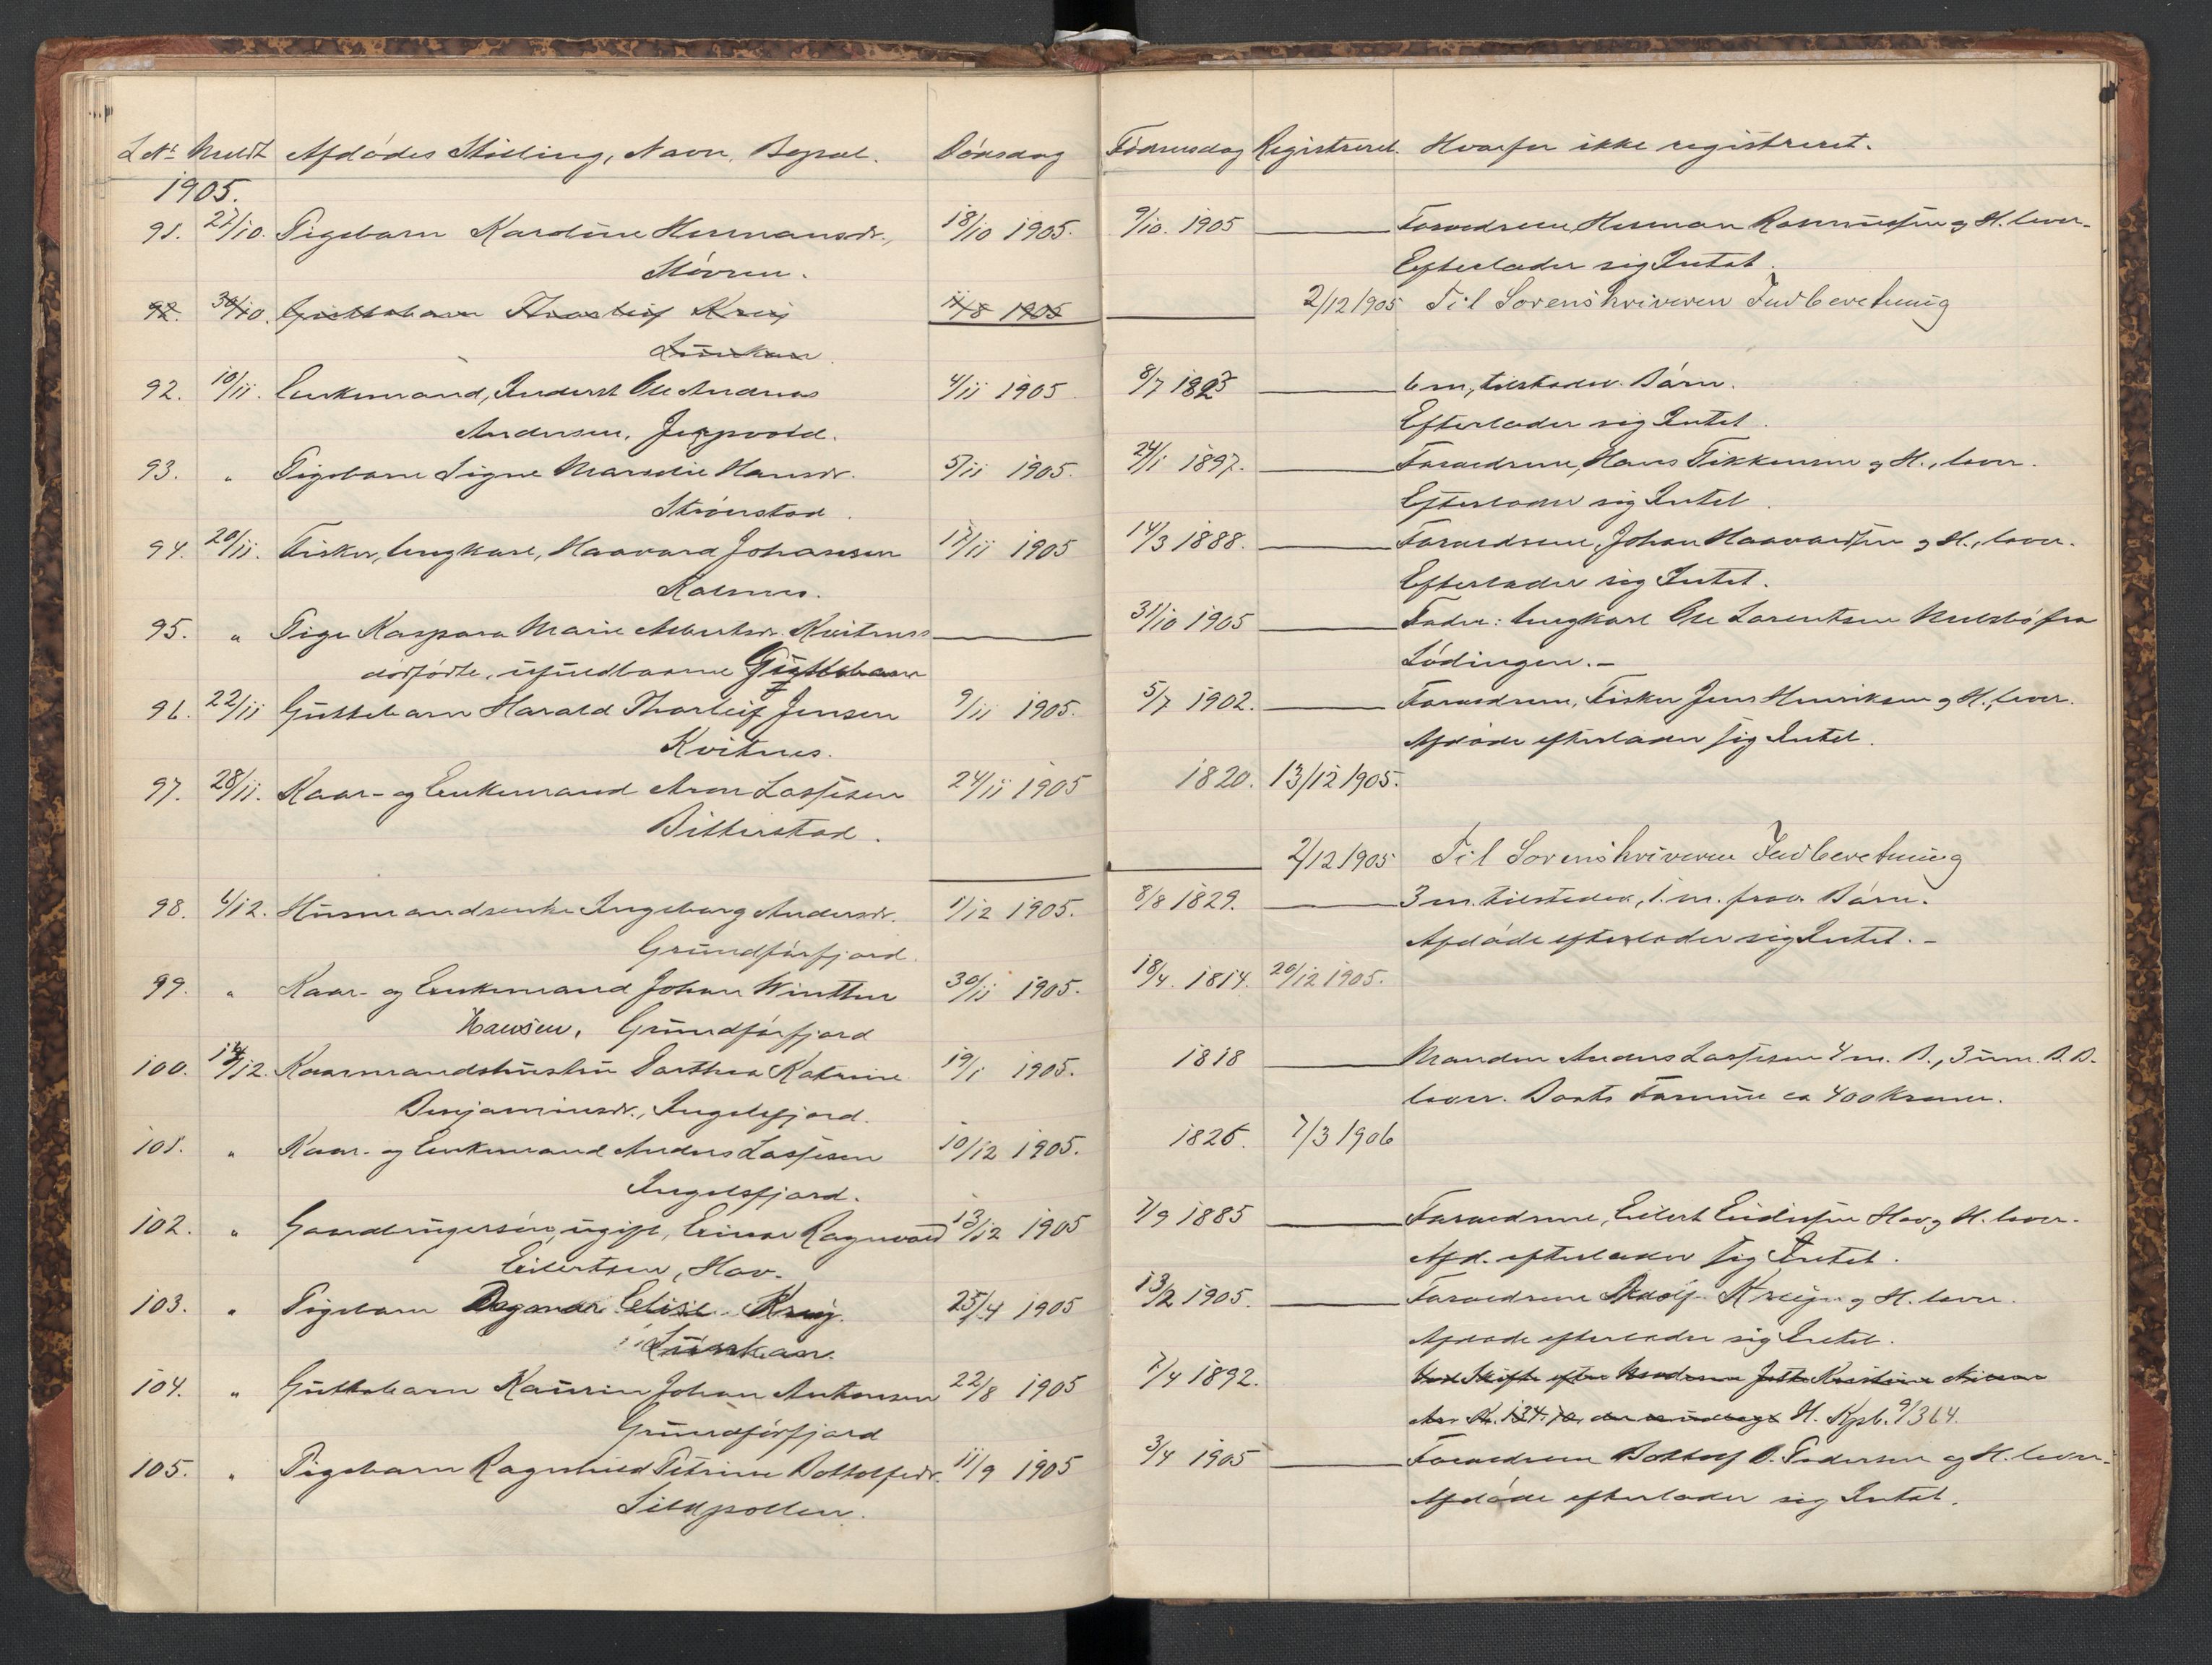 L.Nr. Meldt Afdödes Stilling, Navn, Bopæl. Dödsdag Födselsdag Registreret. Hvorfor ikke registreret.
1905.
91. 27/10. Pigebarn Karoline Hermansdr., 18/10 1905. 9/10. 1905 Forældrene, Herman Rasmussen og H. lever.
Støvren. Efterlader sig Intet.
92. 30/10. Guttebarn Thorleif Krey 11/8 1905 2/12 1905 Til Sorenskriveren Indberetning
92. 10/11. Enkemand, Inderst Ole Andreas 4/11 1905 8/7 1823 6 m., tilstedev. Börn.
Andersen, Efterlader sig Intet.
93. " Pigebarn Signe Hansdr. 5/11 1905. 24/1 1897. Forældrene, Hans Tikkensen og H., lever.
Strönstad. Efterlader sig Intet.
94. 20/11. Fisker, Ungkarl, Haavard Johansen 17/11 1905 14/3 1888. Forældrene, Johan Haavardsen og H., lever.
Efterlader sig Intet.
95. " Pige Kaspara Marie Albertsdr. Kvitnes 31/10 1905 Fader: Ungkarl Ole Larentsen Melsbö fra
dödfödte, ufuldbaarne Guttebarn Lödingen.-
96. 22/11 Guttebarn Harald Thorleif Jensen 9/11 1905. 5/7 1902. Forældrene, Fisker Jens Henriksen og H., lever.
Kvitnes. Afdöde efterlader sig Intet.
97. 28/11. Kaar- og Enkemand Aron Lassesen 24/11 1905 1820. 13/12 1905.
Bitterstad.
2/12 1905 Til Sorenskriveren Indberetning
98. 4/12. Husmandsenke Ingeborg Andersdr. 1/12 1905. 8/8 1829. 3 m. tilstedev., 1. m. frav. Börn.
Grundförfjord. Afdöde efterlader sig Intet.-
99. " Kaar- og Enkemand Johan Winther 30/11 1905. 18/4. 1814. 20/12 1905.
Hansen, Grundförfjord
100. 16/12. Kaarmandshustru Dorthea Katrine 19/1 1905. 1818 Manden Anders Lassesen 4 m. B., 3 um. B. B.
Benjaminsdr., Ingelsfjord. lever. Boets Formue ca 400 Kroner.
101. " Kaar- og Enkemand Anders Lassesen 10/12 1905. 1825. 7/3 1906
Ingelsfjord.
102. " Gaardbrugersön, ugift, Einar Ragnvald 13/12 1905 7/9 1885 Forældrene, Eilert Eidissen Hov og H. lever.
Eilertsen, Hov. Afd. efterlader sig Intet.
103. " Pigebarn Dagmar Elise Krey. 25/4 1905 13/2 1905. Forældrene Adolf Krey og H. lever.
Afdöde efterlader sig Intet.
104. " Guttebarn Kaurin Johan Antonsen 22/8 1905 7/4 1892. Ved Skifte efter Moderen
Grundförfjord H. Kpb. 9/364.
105. " Pigebarn Ragnhild Petrine Bottolfsdr. 11/9 1905 3/4 1905 Forældrene Bottolf B. Pedersen og H. lever.
Sildpollen. Afdöde efterlader sig Intet.